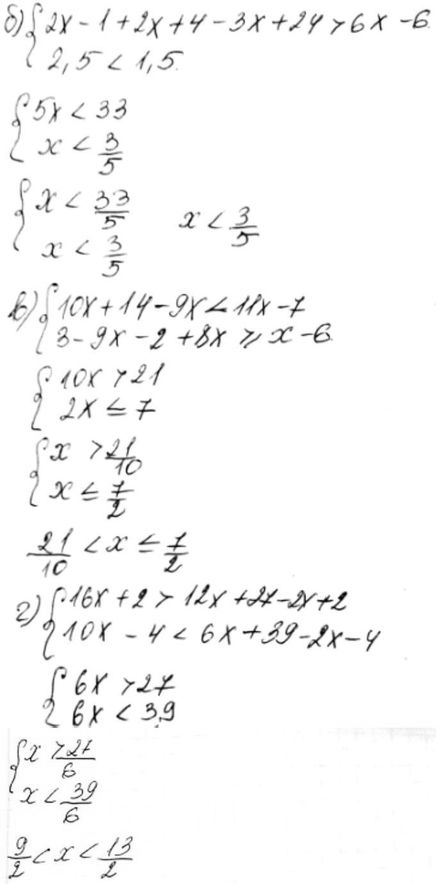 б) { 2x - 1 + 2x + 4 - 3x + 24 > 6x - 6
2,5 < 1,5.
{ 5x < 33
x < 3/5
{ x < 33/5    x < 3/5
x < 3/5
в) { 10x + 14 - 9x < 11x - 7
3 - 9x - 2 + 8x ⩾ x - 6
{ 10x > 21
2x ≤ 7
{ x > 21/10
x ≤ 7/2
21/10 < x ≤ 7/2
г) { 16x + 2 > 12x + 27 - 2x + 2
10x - 4 < 6x + 39 - 2x - 4
{ 6x > 27
6x < 39
{ x > 27/6
x < 39/6
9/2 < x < 13/2